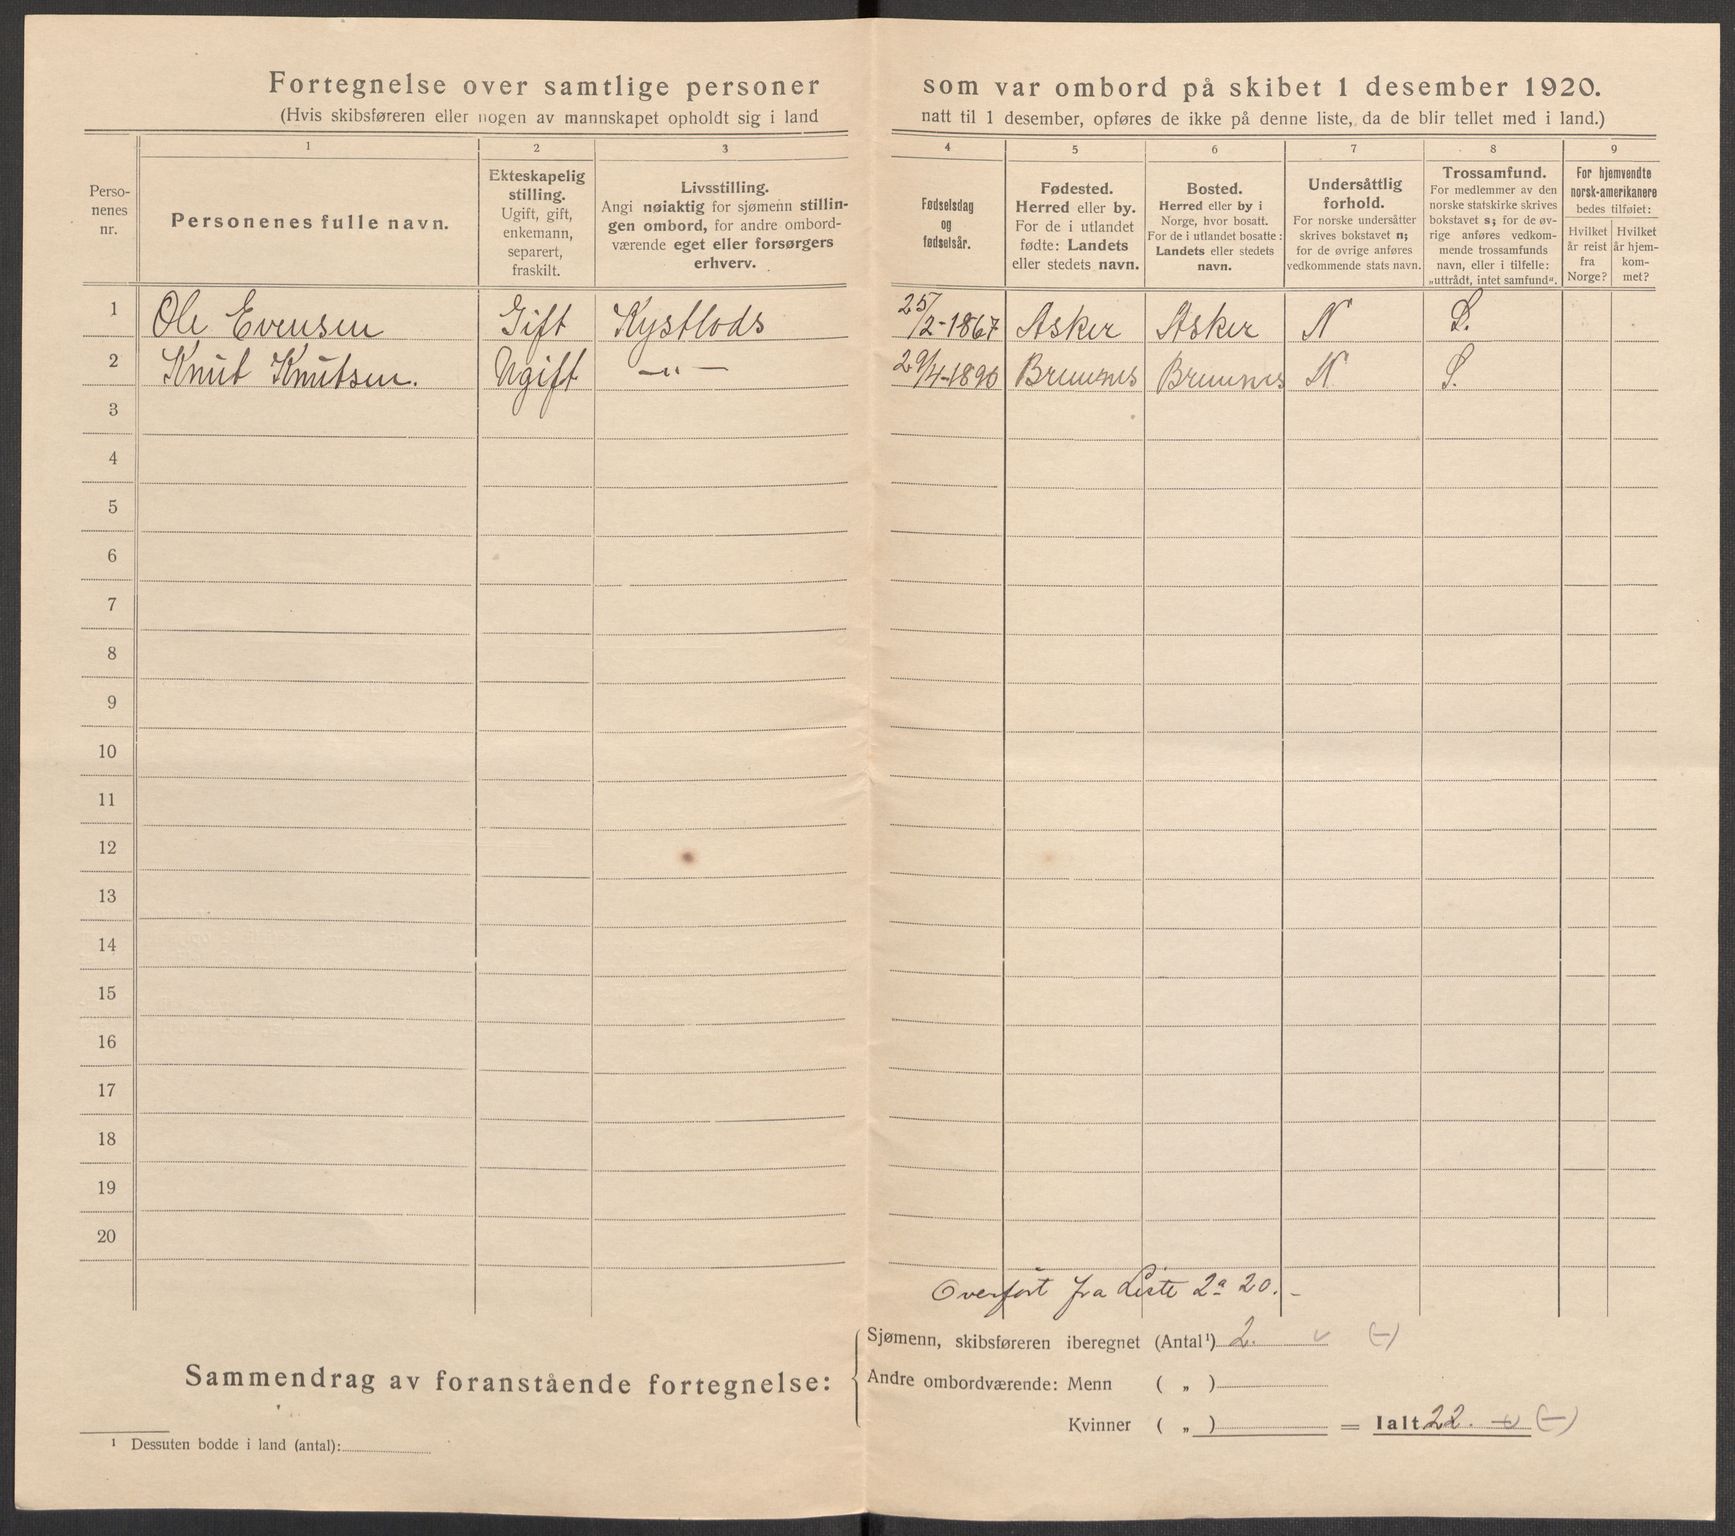 Fortegnelse over samtlige personer som var ombord på skibet 1 desember 1920.
(Hvis skibsføreren eller nogen av mannskapet opholdt sig i land natt til 1 desember, opføres de ikke på denne liste, da de blir tellet med i land.)
1 2 3 4 5 6 7 8 9
Perso-
nenes
nr.
Personenes fulle navn.
Ekteskapelig
stilling.
Ugift, gift,
enkemann,
separert,
fraskilt.
Livsstilling.
Angi nøiaktig for sjømenn stillin-
gen ombord, for andre ombord-
værende eget eller forsørgers
erhverv.
Fødselsdag
og
fødselsår.
Fødested.
Herred eller by.
For de i utlandet
fødte: Landets
eller stedets navn.
Bosted.
Herred eller by i
Norge, hvor bosatt.
For de i utlandet bosatte:
Landets eller stedets
navn.
Undersåttlig
forhold.
For norske undersåtter
skrives bokstavet n;
for de øvrige anføres
vedkommende stats navn.
Trossamfund.
For medlemmer av den
norske statskirke skrives
bokstavet s; for de øv-
rige anføres vedkom-
mende trossamfunds
navn, eller i tilfelle:
„uttrådt, intet samfund".
For hjemvendte
norsk-amerikanere
bedes tilføiet:
Hvilket
år reist
fra
Norge?
Hvilket
år hjem-
kom-
met?
1 Ole Evensen Gift Kystlods 25/2-1867 Asker Asker N S.
2 Knut Knutsen. Ugift —"— 29/4-1890 Brunnes Brunnes N S.
3
4
5
6
7
8
9
10
11
12
13
14
15
16
17
18
19
20
Overført fra Liste 2a 20.-
Sammendrag av foranstående fortegnelse:
Sjømenn, skibsføreren iberegnet (Antal¹) 2. v (-)
Andre ombordværende: Menn ( „ )
Kvinner ( „ ) = Ialt 22. v (-)
¹ Dessuten bodde i land (antal):